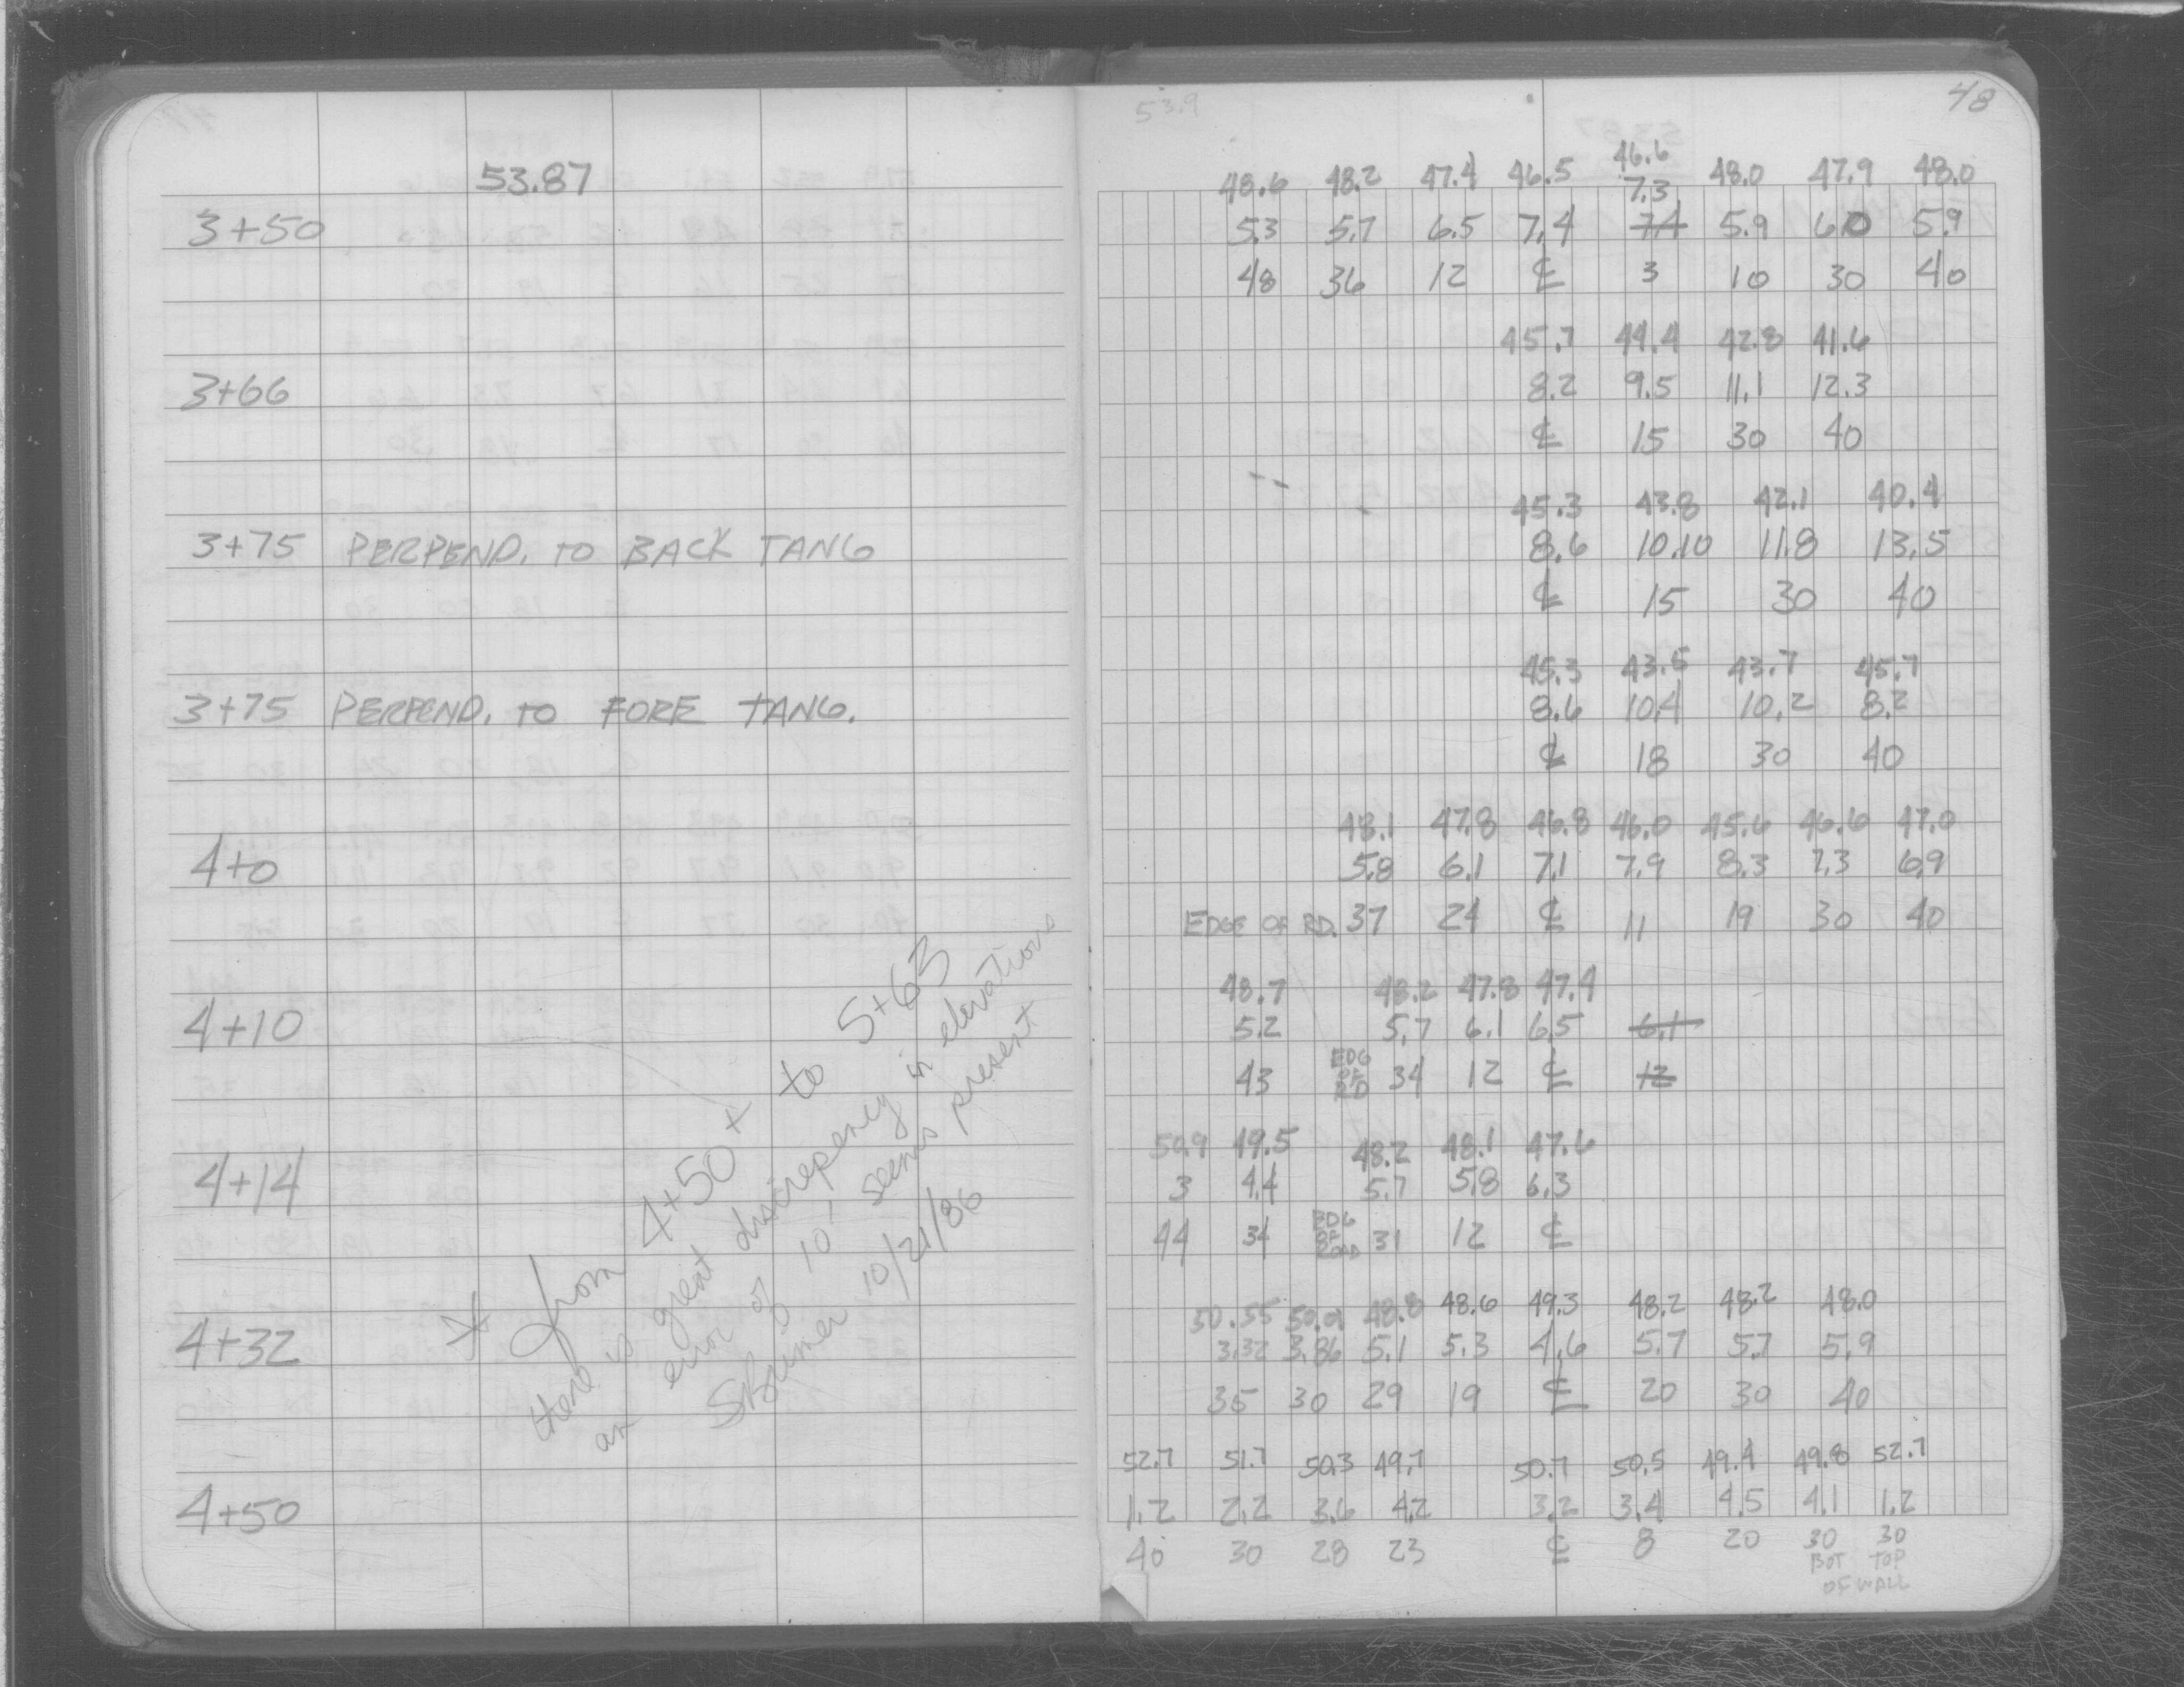 53.87
3+50
3+66
3+75 PERPEND. TO BACK TANG
3+75 PERPEND. TO FORE TANG.
4+0
4+10
4+14
4+32
4+50
* from 4+50 + to 5+63
there is great discrepency in elevations
an error of 10' seems present
10/21/86
53.9
48
48.6 48.2 47.4 46.5 46.6 48.0 47.9 48.0
7.3
5.3 5.7 6.5 7.4 7.4 5.9 6.0 5.9
48 36 12 ℄ 3 10 30 40
45.7 44.4 42.8 41.6
8.2 9.5 11.1 12.3
℄ 15 30 40
45.3 43.8 42.1 40.4
8.6 10.10 11.8 13.5
℄ 15 30 40
45.3 43.5 43.7 45.7
8.6 10.4 10.2 8.2
℄ 18 30 40
48.1 47.8 46.8 46.0 45.6 46.6 47.0
5.8 6.1 7.1 7.9 8.3 7.3 6.9
EDGE OF RD. 37 24 ℄ 11 19 30 40
48.7 48.2 47.8 47.4
5.2 5.7 6.1 6.5 6.1
43 EDG OF RD 34 12 ℄ 12
50.9 49.5 48.2 48.1 47.6
3 4.4 5.7 5.8 6.3
44 34 EDG OF ROAD 31 12 ℄
50.55 50.01 48.8 48.6 49.3 48.2 48.2 48.0
3.32 3.86 5.1 5.3 4.6 5.7 5.7 5.9
35 30 29 19 ℄ 20 30 40
52.7 51.7 50.3 49.7 50.7 50.5 49.4 49.8 52.7
1.2 2.2 3.6 4.2 3.2 3.4 4.5 4.1 1.2
40 30 28 23 ℄ 8 20 30 30
BOT TOP
OF WALL